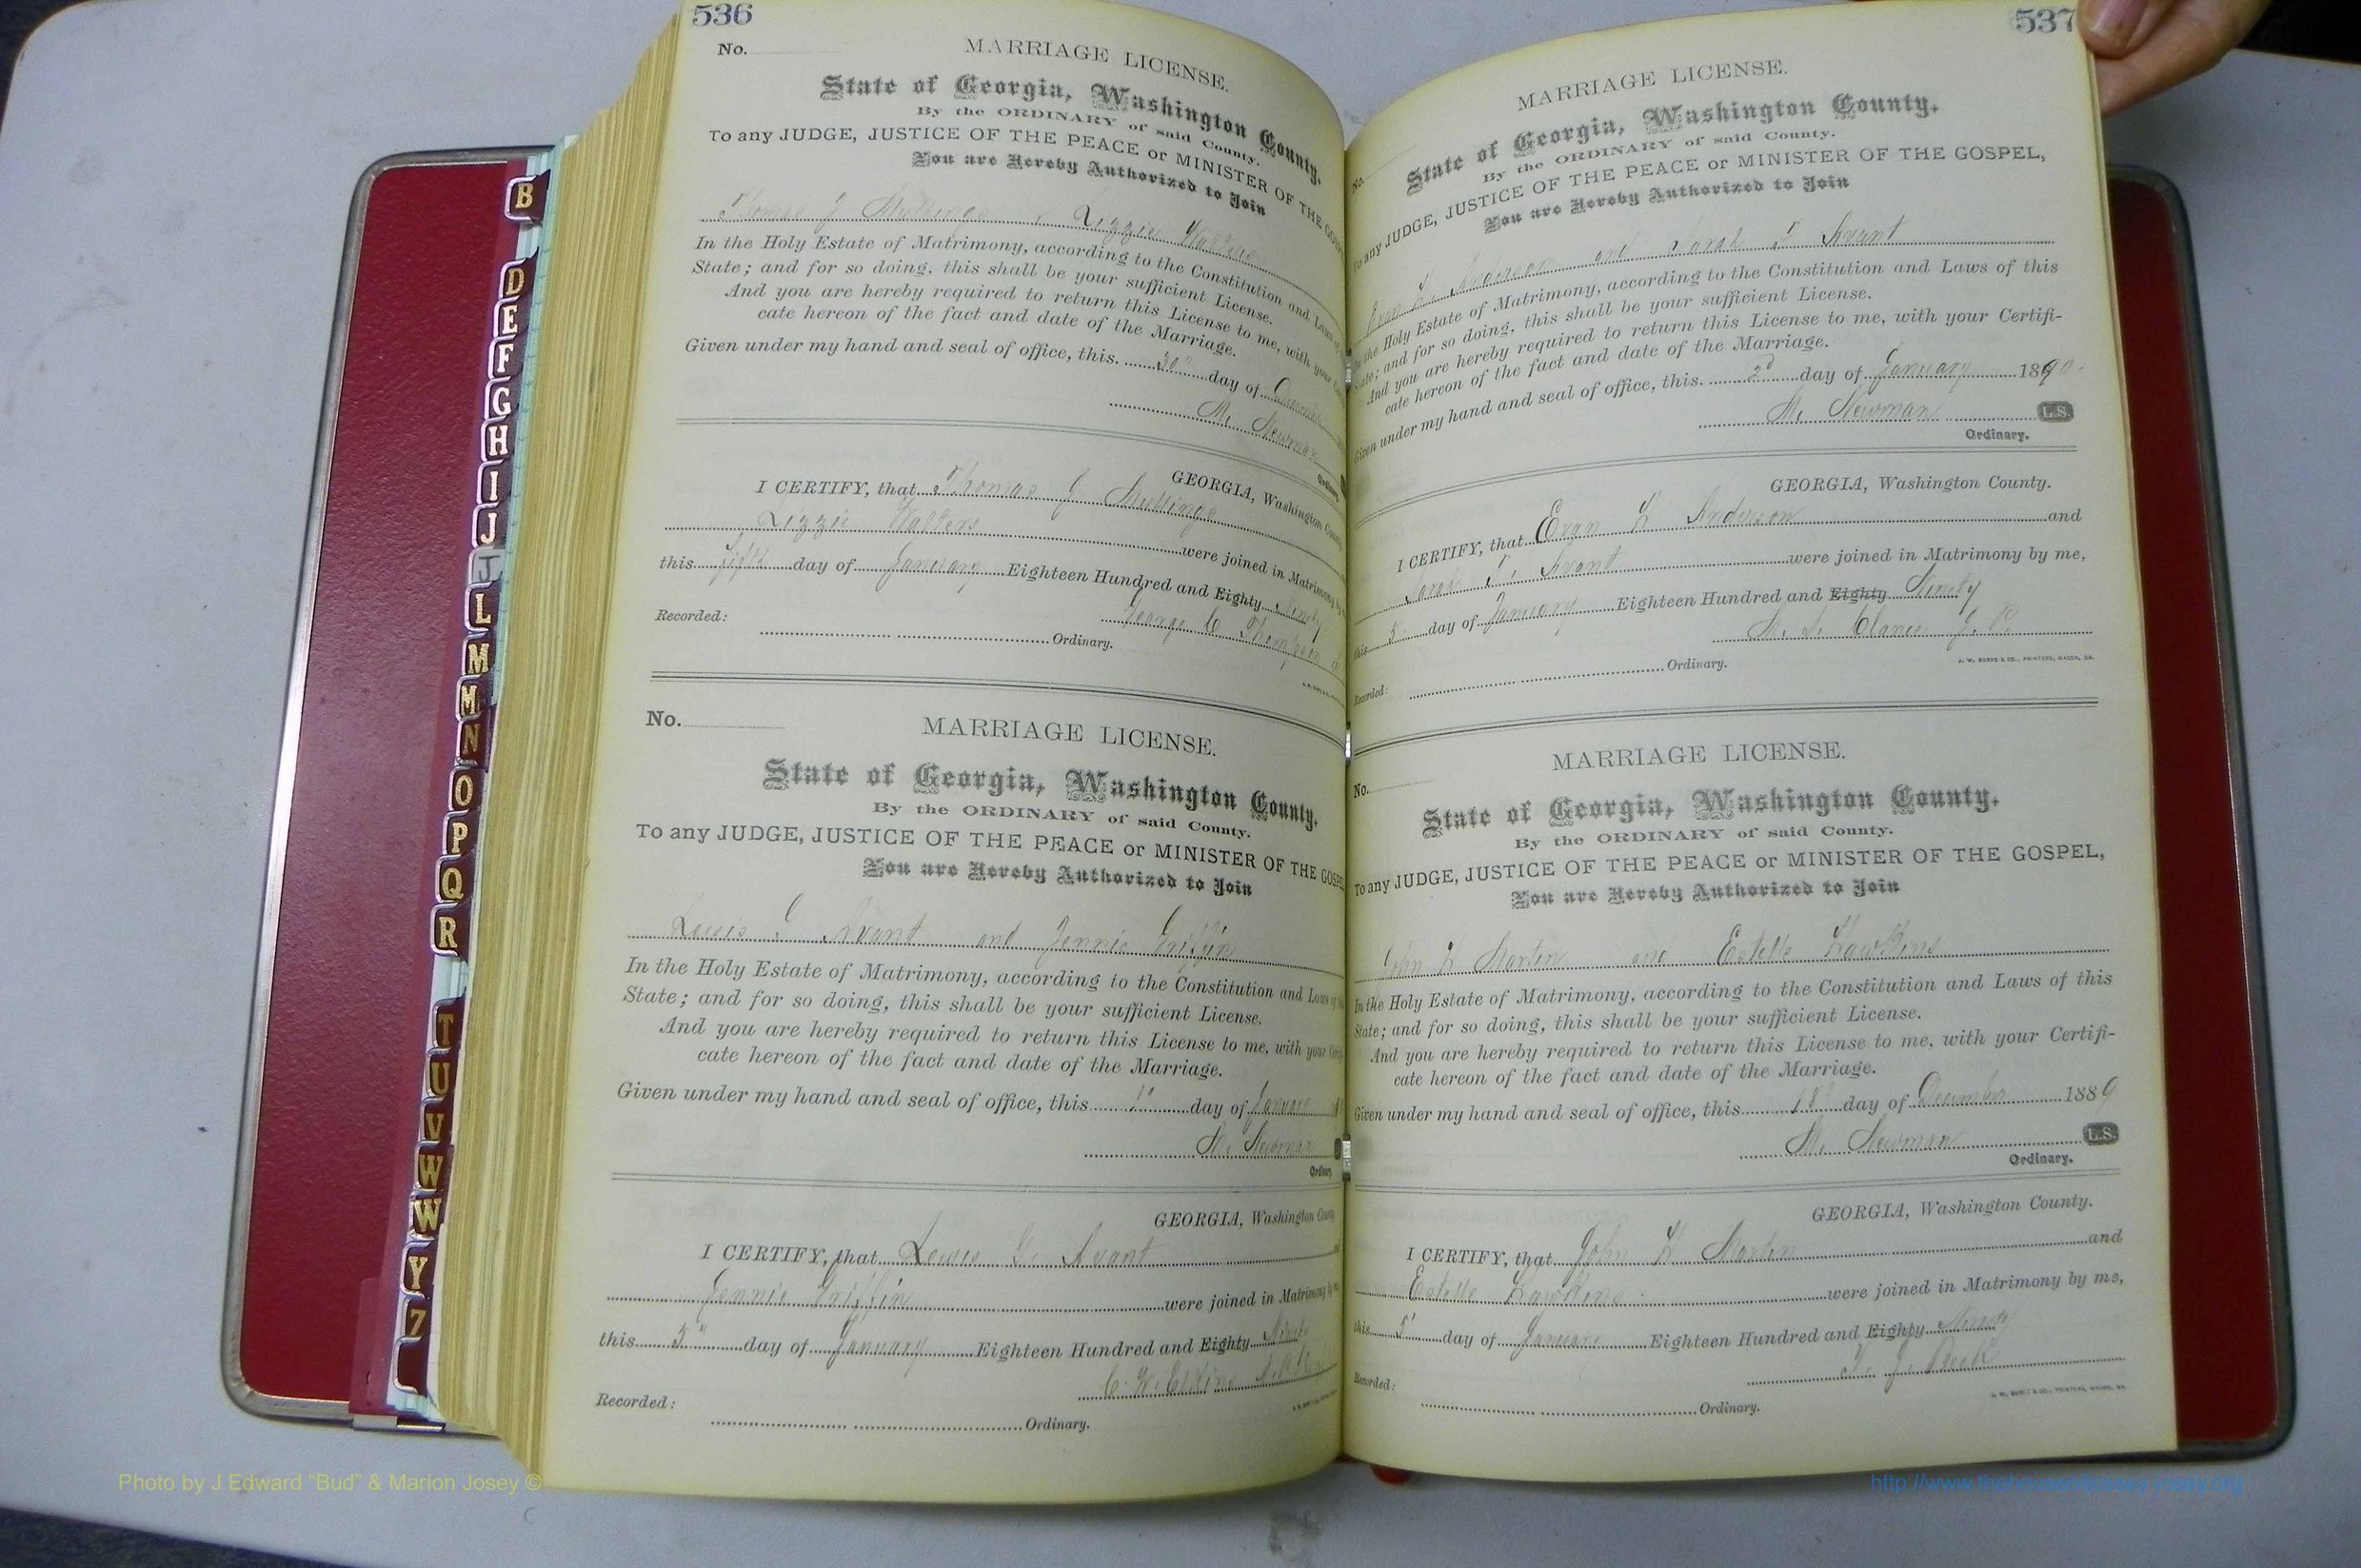 536
No.
MARRIAGE LICENSE.
State of Georgia, Washington County.
By the ORDINARY of said County.
To any JUDGE, JUSTICE OF THE PEACE or MINISTER OF THE GOS
You are Hereby Authorized to Join
Thomas J Lizzie Walters
In the Holy Estate of Matrimony, according to the Constitution and Laws of
State; and for so doing, this shall be your sufficient License.
And you are hereby required to return this License to me, with your
cate hereon of the fact and date of the Marriage.
Given under my hand and seal of office, this 30" day of
M. Newman
Ordinary
GEORGIA, Washington Coun
I CERTIFY, that Thomas J
Lizzie Walters were joined in Matrimony
this fifth day of January Eighteen Hundred and Eighty Ninety
George C Thompson
Recorded: Ordinary.
No.
MARRIAGE LICENSE.
State of Georgia, Washington County.
By the ORDINARY of said County.
To any JUDGE, JUSTICE OF THE PEACE or MINISTER OF THE GOSPE
You are Hereby Authorized to Join
Lewis G Avant and Jennie Griffin
In the Holy Estate of Matrimony, according to the Constitution and Laws of
State; and for so doing, this shall be your sufficient License.
And you are hereby required to return this License to me, with your Certi
cate hereon of the fact and date of the Marriage.
Given under my hand and seal of office, this 1" day of January
M. Newman
Ordinary
GEORGIA, Washington County
I CERTIFY, that Lewis G. Avant
Jennie Griffin were joined in Matrimony by
this 5" day of January Eighteen Hundred and Eighty Ninety
C. W.
Recorded: Ordinary.
537
MARRIAGE LICENSE.
No.
State of Georgia, Washington County.
By the ORDINARY of said County.
To any JUDGE, JUSTICE OF THE PEACE or MINISTER OF THE GOSPEL,
You are Hereby Authorized to Join
Evan H. Anderson and Sarah T Avant
In the Holy Estate of Matrimony, according to the Constitution and Laws of this
State; and for so doing, this shall be your sufficient License.
And you are hereby required to return this License to me, with your Certifi-
cate hereon of the fact and date of the Marriage.
Given under my hand and seal of office, this 2d day of January 1890.
M. Newman L.S.
Ordinary.
GEORGIA, Washington County.
I CERTIFY, that Evan H Anderson and
Sarah T. Avant were joined in Matrimony by me,
this 5" day of January Eighteen Hundred and Eighty Ninety
J. P.
J. W. BURKE & CO., PRINTERS, MACON, GA.
Recorded: Ordinary.
MARRIAGE LICENSE.
No.
State of Georgia, Washington County.
By the ORDINARY of said County.
To any JUDGE, JUSTICE OF THE PEACE or MINISTER OF THE GOSPEL,
You are Hereby Authorized to Join
John H Martin and Estelle Hawkins
In the Holy Estate of Matrimony, according to the Constitution and Laws of this
State; and for so doing, this shall be your sufficient License.
And you are hereby required to return this License to me, with your Certifi-
cate hereon of the fact and date of the Marriage.
Given under my hand and seal of office, this 18" day of December 1889
M. Newman L.S.
Ordinary.
GEORGIA, Washington County.
I CERTIFY, that John H Martin and
Estelle Hawkins were joined in Matrimony by me,
this 5" day of January Eighteen Hundred and Eighty Ninety
T. J. Beck
Recorded: Ordinary.
J. W. BURKE & CO., PRINTERS, MACON, GA.
B
D
E
F
G
H
I
J
J
L
M
M
N
O
P
Q
R
T
U
V
W
W
Y
Z
Photo by J Edward “Bud” & Marion Josey ©